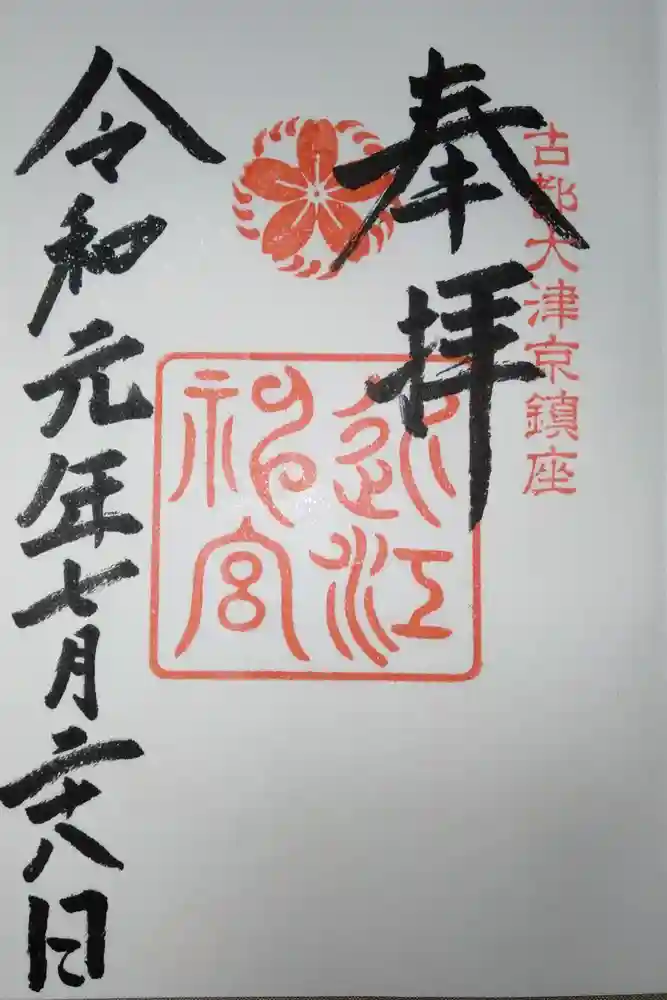 古都大津京鎮座
奉拝
近江
神宮
令和元年七月二十八日